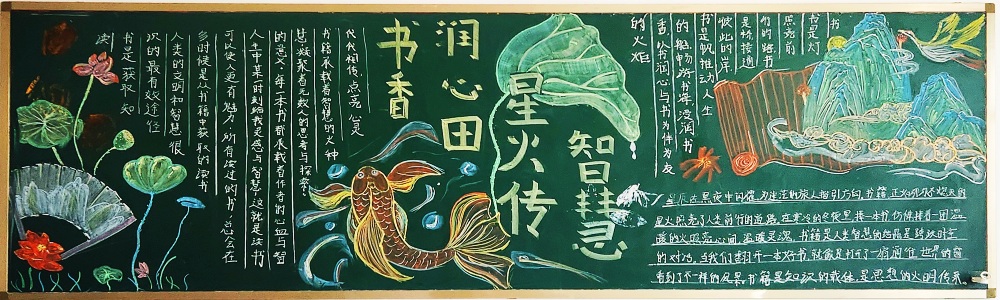 读
书是一获取知
识的最有效途径
人类的文明和智慧很
多时候是从书籍中获取的读书
可以使人更有魅力 所有读过的书总会在
人生中某一时刻给我灵感与智慧,这就是读书
的意义,每一本书都承载着作者的心血与智
慧凝聚着无数人的思考与探索
书籍承载着智慧的火种
代代相传,点亮心灵
书香
润心田
星火传
智慧
书
书是灯
照亮前
行的路书
是桥接通
彼此的岸
书是帆推动人生
的船畅游书海浸润书
香以书润心与书为伴为友
的火炬
星辰在黑夜中闪耀为迷茫的旅人指引方向,书籍正如那永不熄灭的
星火照亮了人类前行的道路,在寒冷的冬夜里捧一本书仿佛捧着一团温
暖的火照亮心间 温暖灵魂,书籍是人类智慧的结晶是跨越时空
的对话,当我们翻开一本好书,就像是打开了一扇通往世界的窗
看到了不一样的风景,书籍是知识的载体,是思想的火明传承